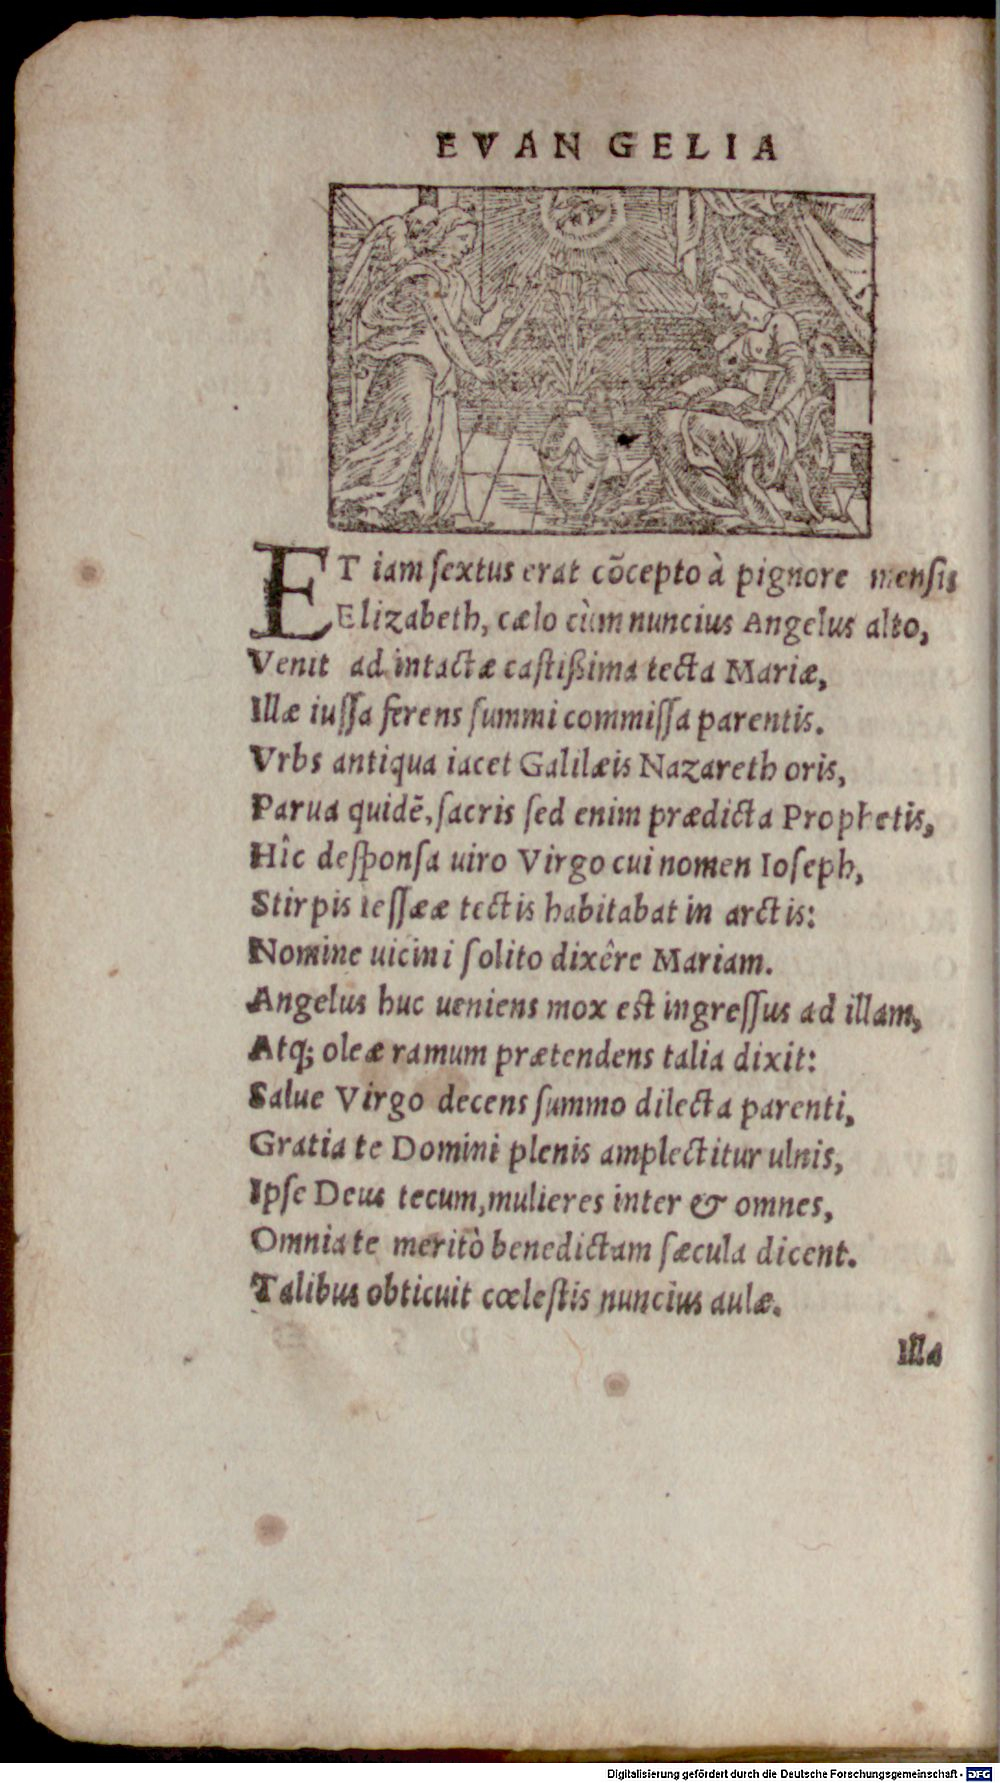 EVANGELIA
ET iam ſextus erat cõcepto à pignore mensis
Elizabeth, cælo cùm nuncius Angelus alto,
Venit ad intactæ caſtißima tecta Mariæ,
Illæ iuſſa ferens ſummi commiſſa parentis.
Vrbs antiqua iacet Galilæis Nazareth oris,
Parua quidẽ, ſacris ſed enim prædicta Prophetis,
Hîc deſponſa uiro Virgo cui nomen Ioſeph,
Stirpis ieſſææ tectis habitabat in arctis:
Nomine uicini ſolito dixêre Mariam.
Angelus huc ueniens mox est ingreſſus ad illam,
Atq; oleæ ramum prætendens talia dixit:
Salue Virgo decens ſummo dilecta parenti,
Gratia te Domini plenis amplectitur ulnis,
Ipſe Deus tecum, mulieres inter & omnes,
Omnia te meritò benedictam ſæcula dicent.
Talibus obticuit cœleſtis nuncius aulæ.
Illa
Digitalisierung gefördert durch die Deutsche Forschungsgemeinschaft - DFG